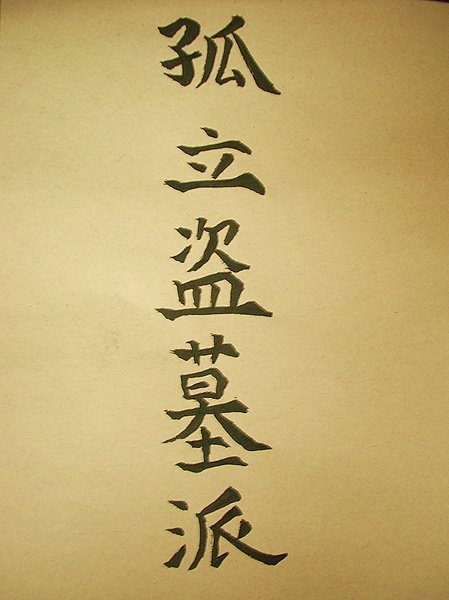 孤立盗墓派